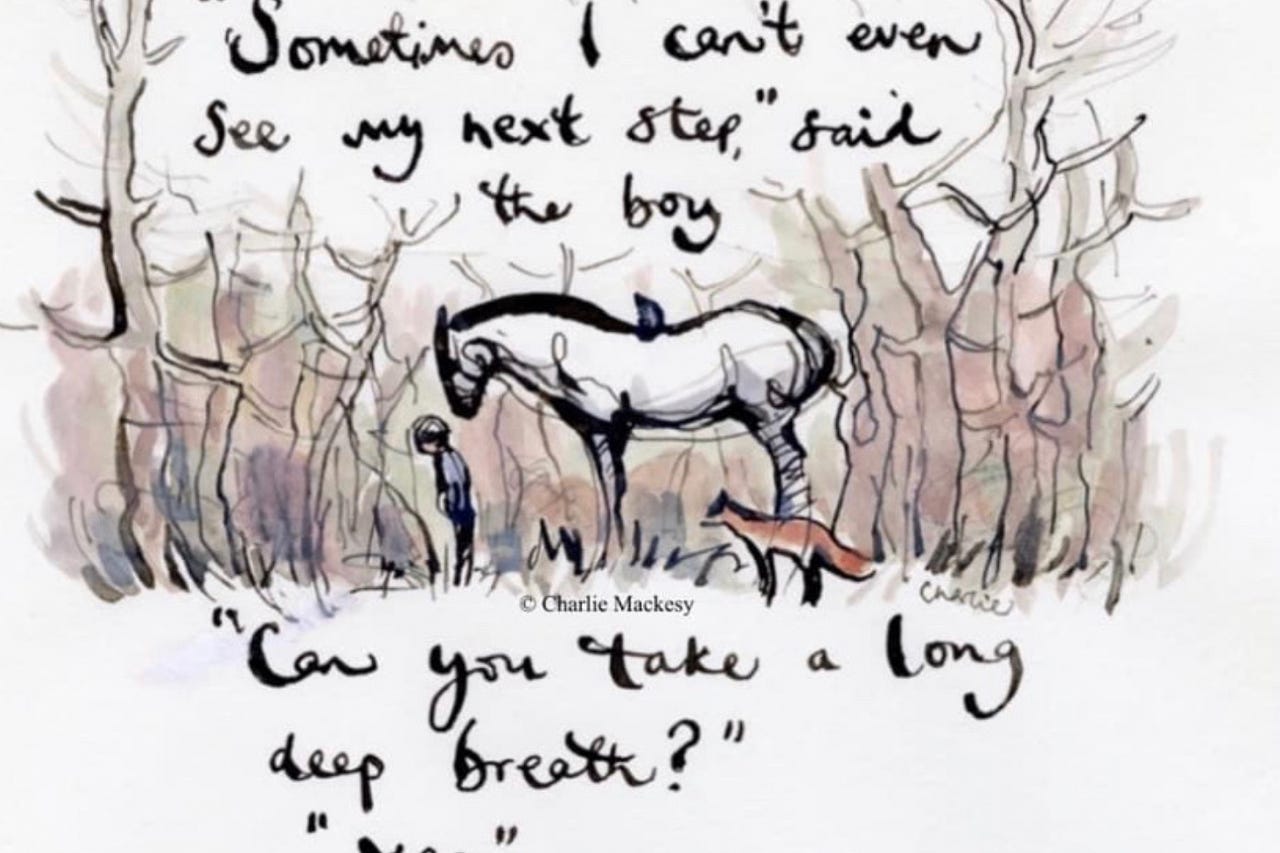 "Sometimes I can't even
see my next step," said
the boy
Charlie
© Charlie Mackesy
"Can you take a long
deep breath?"